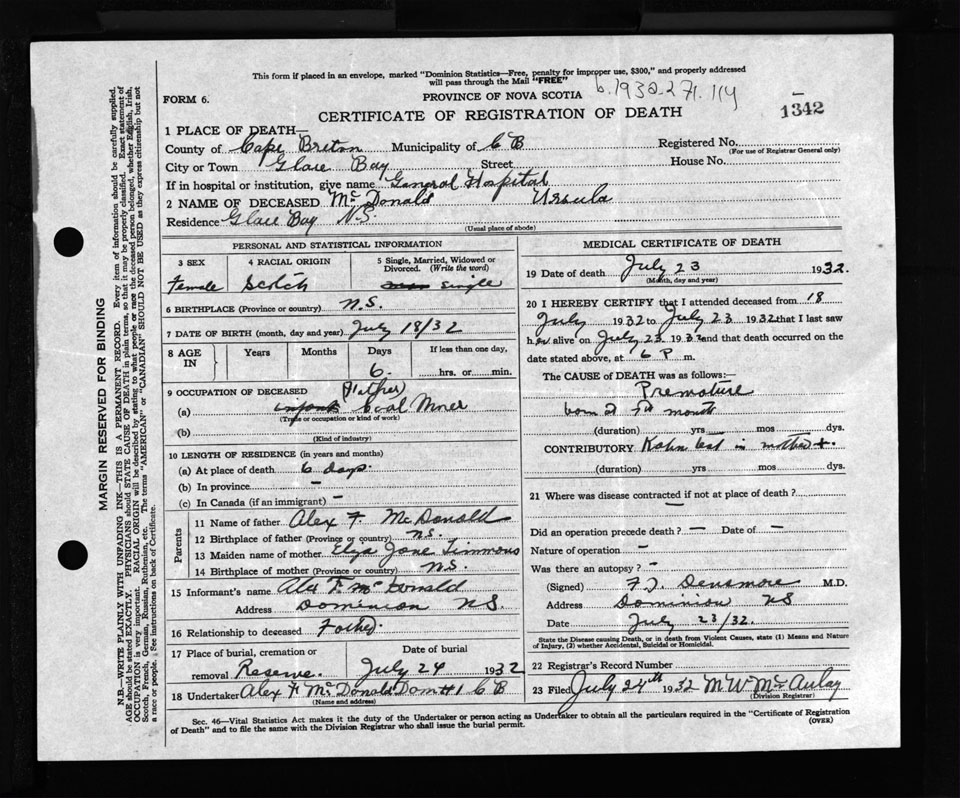 This form if placed in an envelope, marked "Dominion Statistics—Free, penalty for improper use, $300," and properly addressed
will pass through the Mail "FREE"
b. 1932-271-114
FORM 6.
PROVINCE OF NOVA SCOTIA
1342
CERTIFICATE OF REGISTRATION OF DEATH
MARGIN RESERVED FOR BINDING
N.B.—WRITE PLAINLY WITH UNFADING INK—THIS IS A PERMANENT RECORD. Every item of information should be carefully supplied.
AGE should be stated EXACTLY. PHYSICIANS should STATE CAUSE OF DEATH in plain terms, so that it may be properly classified. Exact statement of
OCCUPATION is very important. RACIAL ORIGIN will be described by stating to what people or race the deceased person belonged, whether English, Irish,
Scotch, French, German, Russian, Ruthenian, etc. The terms "AMERICAN" or "CANADIAN" SHOULD NOT BE USED as they express citizenship but not
a race or people. See instructions on back of Certificate.
1 PLACE OF DEATH—
County of Cape Breton Municipality of C B Registered No.
(For use of Registrar General only)
City or Town Glace Bay Street House No.
If in hospital or institution, give name General Hospital
2 NAME OF DECEASED McDonald Ursula
Residence Glace Bay N.S.
(Usual place of abode)
PERSONAL AND STATISTICAL INFORMATION
3 SEX 4 RACIAL ORIGIN 5 Single, Married, Widowed or
Divorced. (Write the word)
Female Scotch single
6 BIRTHPLACE (Province or country) N.S.
7 DATE OF BIRTH (month, day and year) July 18/32
8 AGE IN Years Months Days If less than one day,
6. hrs. or min.
9 OCCUPATION OF DECEASED (Father)
(a) Coal Miner
(Trade or occupation or kind of work)
(b)
(Kind of industry)
10 LENGTH OF RESIDENCE (in years and months)
(a) At place of death 6 days.
(b) In province —
(c) In Canada (if an immigrant) —
Parents
11 Name of father Alex F. McDonald
12 Birthplace of father (Province or country) N.S.
13 Maiden name of mother Eliza Jane Timmons
14 Birthplace of mother (Province or country) N.S.
15 Informant's name Alex F. McDonald
Address Dominion N.S.
16 Relationship to deceased Father.
17 Place of burial, cremation or Date of burial
removal Reserve July 24 1932
18 Undertaker Alex F McDonald Dom #1 C B
(Name and address)
MEDICAL CERTIFICATE OF DEATH
19 Date of death July 23 1932.
(Month, day and year)
20 I HEREBY CERTIFY that I attended deceased from 18
July 1932 to July 23 1932 that I last saw
her alive on July 23 1932 and that death occurred on the
date stated above, at 6 P m.
The CAUSE of DEATH was as follows:—
Premature
born at 7th month
(duration) yrs mos dys.
CONTRIBUTORY Kahn test in mother +.
(duration) yrs mos dys.
21 Where was disease contracted if not at place of death?
—
Did an operation precede death? — Date of —
Nature of operation —
Was there an autopsy? —
(Signed) F.J. Densmore M.D.
Address Dominion NS
Date July 23/32.
State the Disease causing Death, or in death from Violent Causes, state (1) Means and Nature
of Injury, (2) whether Accidental, Suicidal or Homicidal.
22 Registrar's Record Number
23 Filed July 24th 1932 M W McAulay
(Division Registrar)
Sec. 46—Vital Statistics Act makes it the duty of the Undertaker or person acting as Undertaker to obtain all the particulars required in the "Certificate of Registration
of Death" and to file the same with the Division Registrar who shall issue the burial permit.
(OVER)